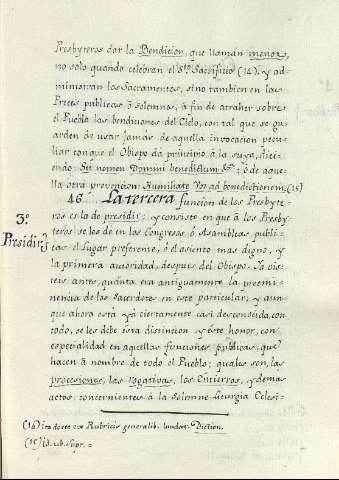 Presbyteros dar la Bendicion, que llaman menor,
no solo quando celebran el Sto. Sacrificio (14), y ad-
ministran los Sacramentos, sino tambien en las
Preces publicas ò solemnes, à fin de atraher sobre
el Pueblo las bendiciones del Cielo, con tal que se gu-
arden ds usar jamàs de aquella invocacion pecu-
liar con que el Obispo dà principio à la suya, dici-
endo: Sit nomen Domini benedictum &a.; ò de aque-
lla otra prevencion: Humiliate Vos ad benedictionem. (15)
46. La tercera funcion de los Presbyte-
3º
Presidir
ros es la de presidir; y consiste en que à los Presby-
teros se les dè en las Congresos, ò Asambleas publi-
cas el Lugar preferente, ò el asiento mas digno, y
la primera autoridad, despues del Obispo. Ya ois-
teis antes, quànta era antiguamente la preemi-
nencia de los Sacerdotes en este particular; y aun-
que ahora està yà ciertamente casi desconocida, con
todo, se les debe esta distincion y este honor, con
especialidad en aquellas funciones publicas, que
hacen à nombre de todo el Pueblo; quales son, las
processiones, las Rogativas, los Entierros, y demas
actos concernientes à la solemne Liturgia Eclesi-
(14) Ita docet ex Rubricis generalib. laudat. Diction.
(15) Id. ub. supr. =